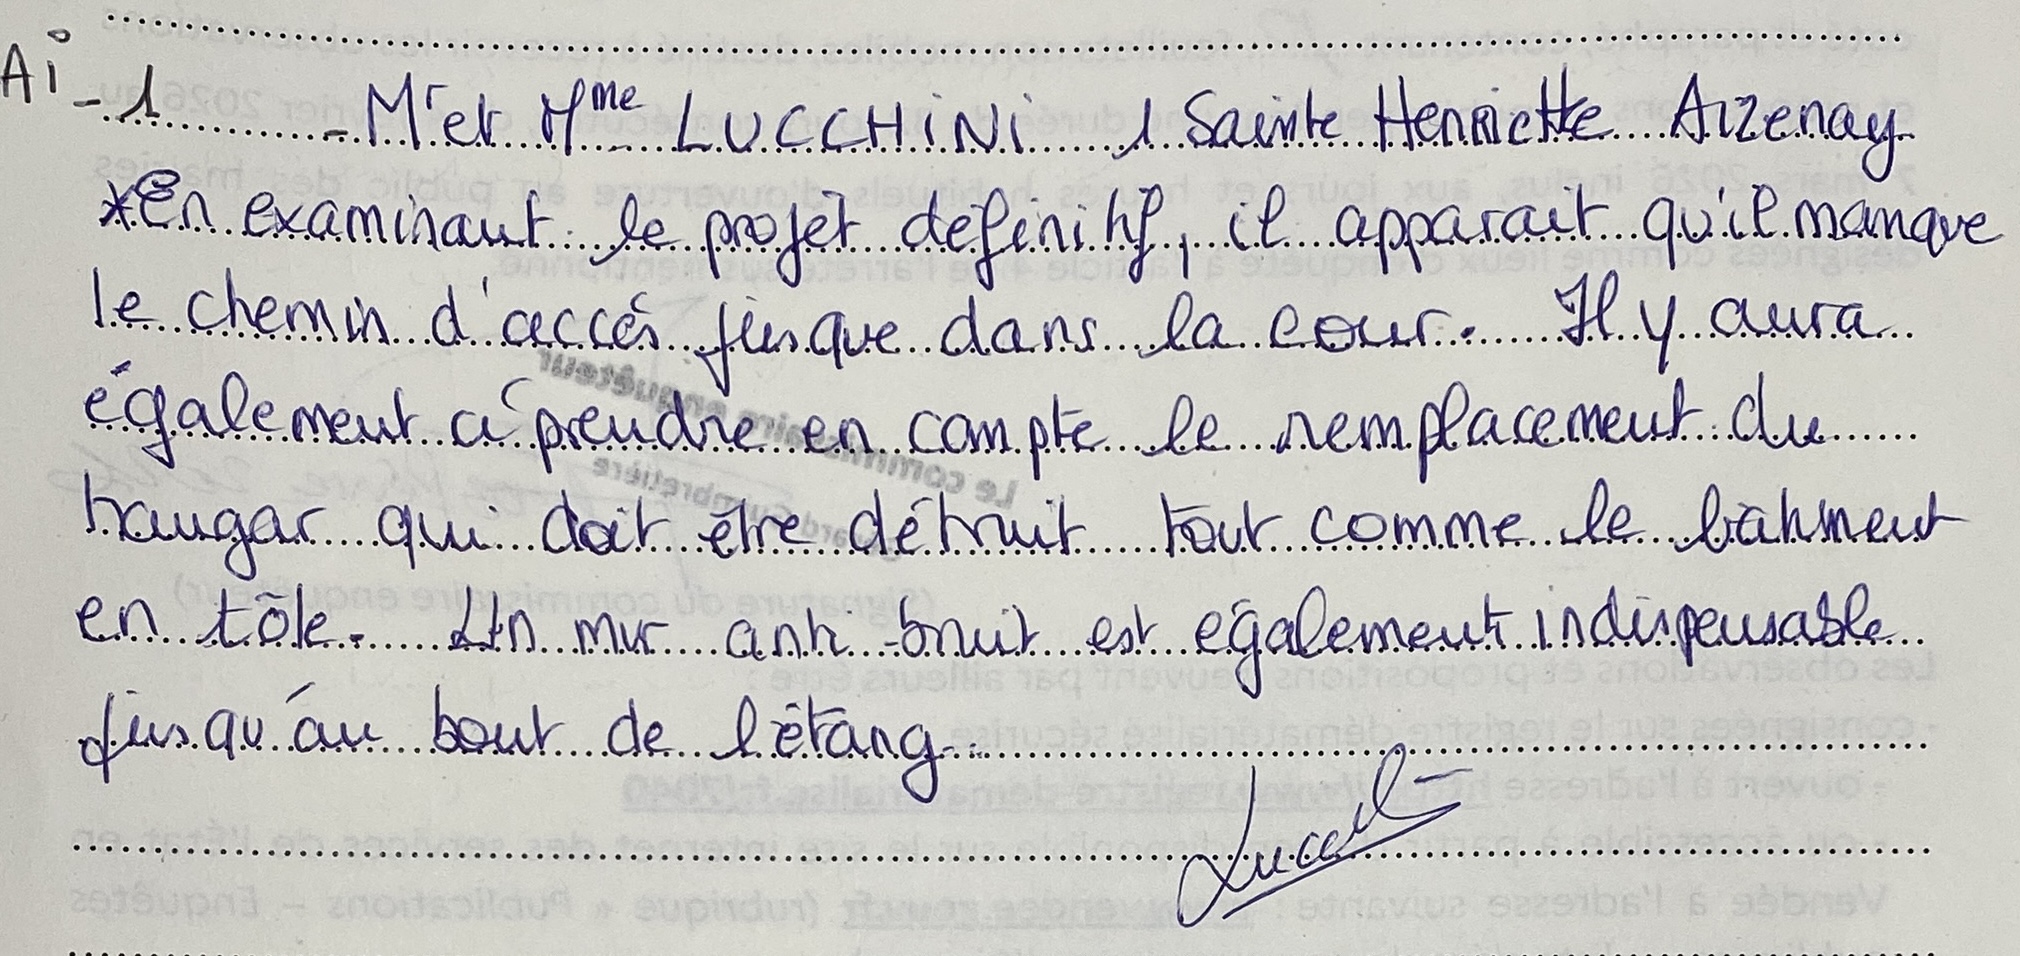 Ai-1 - Mr et Mme LUCCHiNi 1 Sainte Henriette Aizenay
*En examinant le projet définitif, il apparait qu'il manque
le chemin d'accés jusque dans la cour. Il y aura
également à prendre en compte le remplacement du
hangar qui doit être détruit tout comme le bâtiment
en tôle. Un mur anti-bruit est également indispensable
jusqu'au bout de l'étang.